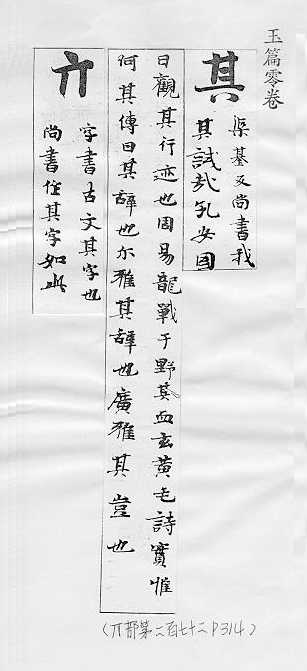 玉篇零卷
其
渠基反尚書我
其試哉孔安国
曰觀其行迹也周易龍戰于野其血玄黄毛詩實惟
何其傳曰其辞也尓雅其辞也廣雅其豈也
亓
字書古文其字也
尚書作其字如此
(丌部第二百七十二P314)